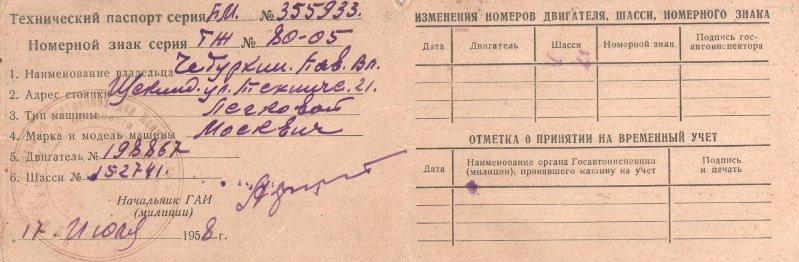 Технический паспорт серия БМ. № 355933.
Номерной знак серия ТЖ № 80-05
1. Наименование владельца Чебуркин. Пав. Вл.
2. Адрес стоянки ул. 21.
3. Тип машины Легковой
4. Марка и модель машины Москвич
5. Двигатель № 198867
6. Шасси № 152741.
Начальник ГАИ
(милиции)
„17“ Июля 1958 г.
ИЗМЕНЕНИЯ НОМЕРОВ ДВИГАТЕЛЯ, ШАССИ, НОМЕРНОГО ЗНАКА
Дата Двигатель Шасси Номерной знак Подпись гос-
автоинспектора
ОТМЕТКА О ПРИНЯТИИ НА ВРЕМЕННЫЙ УЧЕТ
Дата Наименование органа Госавтоинспекции Подпись
(милиции), принявшего машину на учет и печать